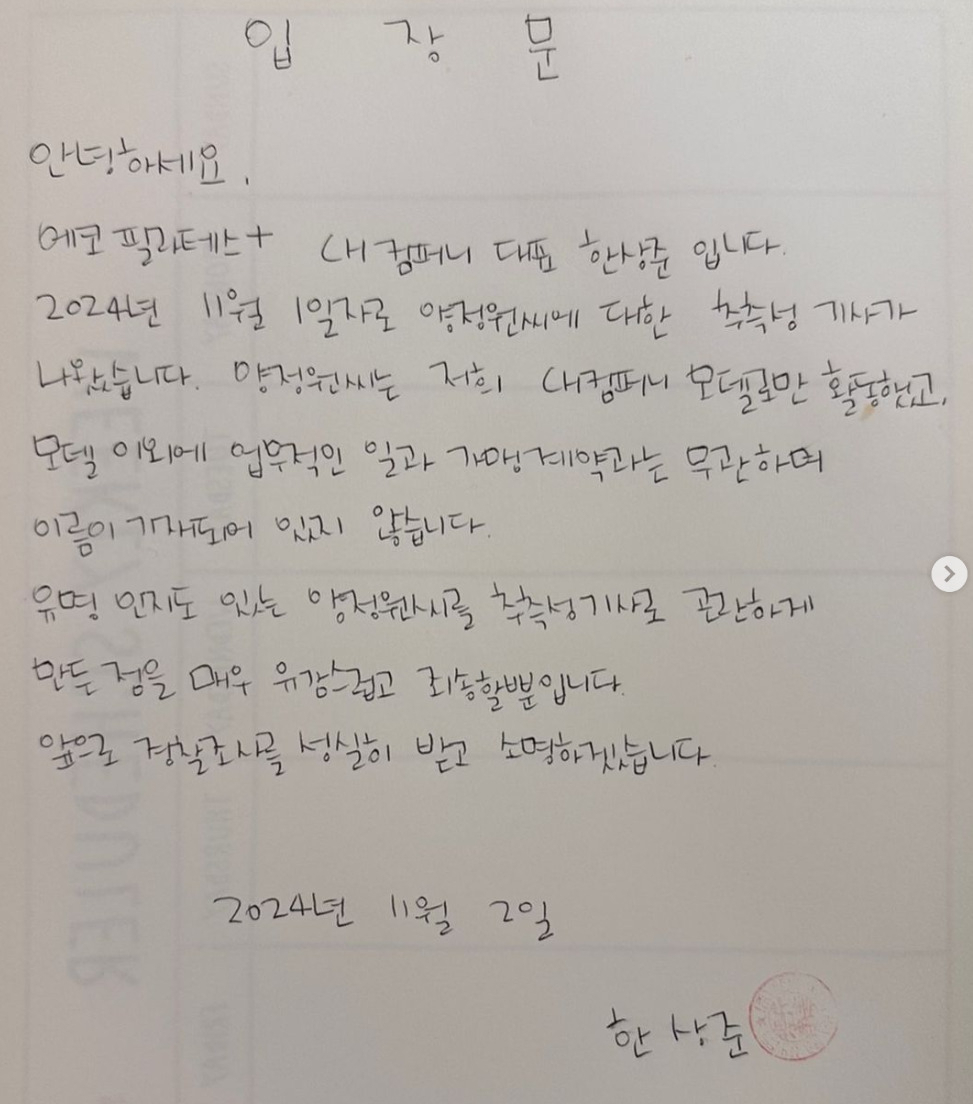 입 장 문
안녕하세요.
에코 필라테스+ 새컴퍼니 대표 한상준 입니다.
2024년 11월 1일자로 양정원씨에 대한 추측성 기사가
나왔습니다. 양정원씨는 저희 새컴퍼니 모델로만 활동했고,
모델 이외에 업무적인 일과 가맹계약과는 무관하며
이름이 기재되어 있지 않습니다.
유명 인지도 있는 양정원씨를 추측성기사로 곤란하게
만든 점을 매우 유감스럽고 죄송할뿐입니다.
앞으로 경찰조사를 성실히 받고 소명하겠습니다.
2024년 11월 2일
한 상 준